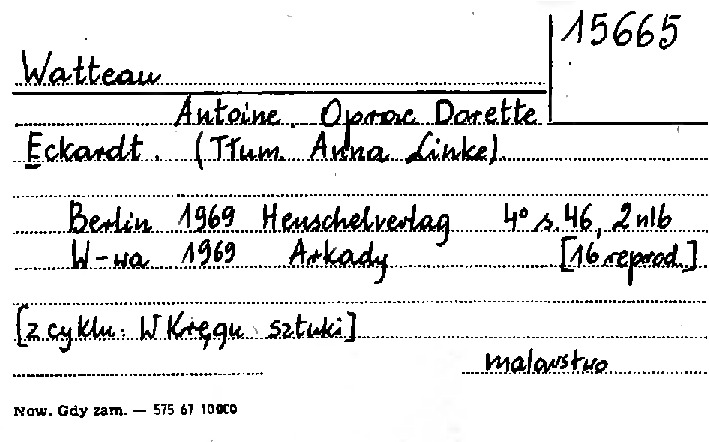 15665
Watteau
Antoine. Oprac Dorette
Eckardt. (Tłum. Anna Linke).
Berlin 1969 Henschelverlag 4° s. 46, 2 nlb
W-wa 1969 Arkady [16 reprod.]
[z cyklu: W Kręgu sztuki]
malarstwo
Now. Gdy zam. — 575 67 10000